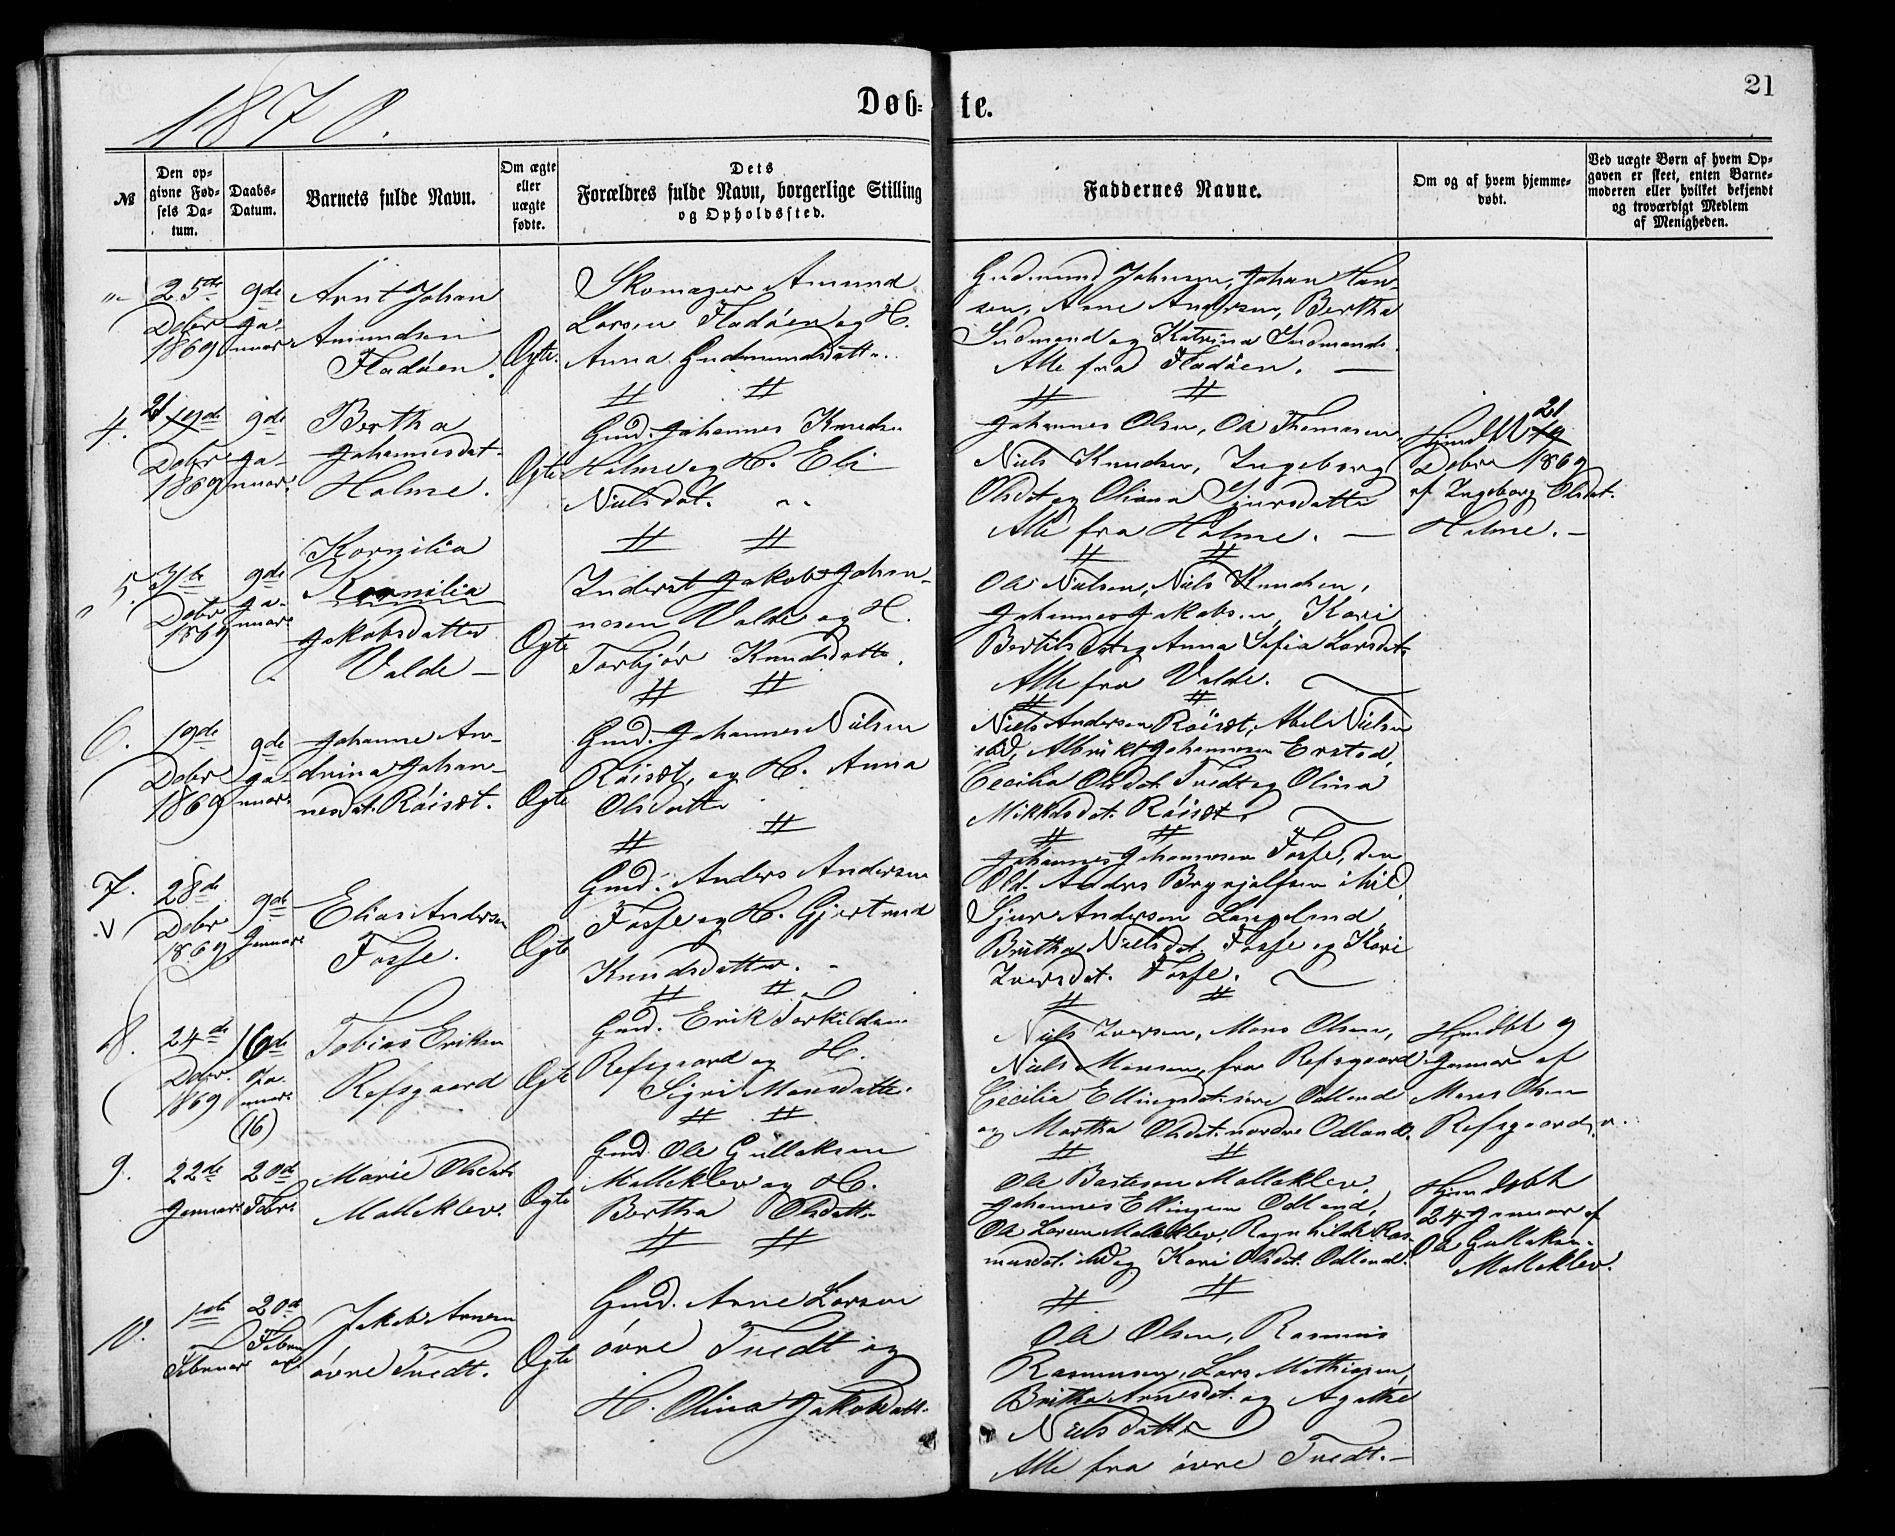 21
1870.
Døb= te.
№
Den op-
givne Fød-
sels Da-
tum.
Daabs-
Datum.
Barnets fulde Navn.
Om ægte
eller
uægte
fødte.
Dets
Forældres fulde Navn, borgerlige Stilling
og Opholdssted.
Faddernes Navne.
Om og af hvem hjemme-
døbt.
Ved uægte Børn af hvem Op-
gaven er skeet, enten Barne-
moderen eller hvilket bekjendt
og troværdigt Medlem
af Menigheden.
25de
Dcbr
1869
9de
Ja-
nuar
Arnt Johan
Amundsen
Fladøen.
Ægte.
Skomager Amund
Larsen Fladøen og H.
Anna Gudmundsdatter.
Gudmund Johnsen, Johan Han-
sen, Anne Andersen, Bertha
Gudmund og Katrina Gudmunds.
Alle fra Fladøen. —
4.
21 19de
Dcbr
1869
9de
Ja-
nuar.
Bertha
Johannesdat.
Holme.
Ægte
Gmd. Johannes Knudsen
Holme og H. Eli
Nielsdat.
Johannes Olsen, Ole Thomasen
Niels Knudsen, Ingeborg
Olsdat og Oliana Sjursdatter
Alle fra Holme. —
Hjmdbt 21 19
Dcbr 1869
af Ingeborg Olsdat.
Holme. —
5.
31te
Dcbr
1869
9de
Ja-
nuar
Kornilia
Kornilia
Jakobsdatter
Valde —
Ægte
Inderst Jakob Johan-
nesen Valde og H.
Torbjør Knudsdatter.
Ole Nielsen, Niels Knudsen,
Johannes Jakobsen, Kari
Bertilsdat og Anna Sofia Larsdat.
Alle fra Valde.
6.
19de
Dcbr
1869
9de
Ja-
nuar
Johanne An-
drina Johan-
nesdat. Röisæt.
Ægte
Gmd. Johannes Nielsen
Röisæt, og H. Anna
Olsdatter
Niels Andersen Röisæt, Abel Nielsen
ibid, Albrikt Johannesen Erstad,
Cecilia Olsdat. Tvedt og Olina
Mikkelsdat. Röisæt.
7.
V
28de
Dcbr
1869
9de
Januar
Elias Andersen
Fosse.
Ægte
Gmd. Anders Andersen
Fosse og H. Gjertrud
Knudsdatter.
Johannes Johannesen Fosse,
Old. Anders Brynjulfsen ibid,
Sjur Andersen Langeland
Britha Nielsdat. Fosse og Kari
Iversdat. Fosse.
8.
24de
Dcbr.
1869
16de
Ja-
nuar
(16)
Tobias Eriksen
Refsgaard
Ægte
Gmd. Erik Torkildsen
Refsgaard og H.
Sigri Monsdatter.
Niels Iversen, Mons Olsen,
Niels Monsen, fra Refsgaard
Cecilia Ellingsdat. søre Odland
og Martha Olsdat. nordre Odland.
Hjmdbt 9
Januar af
Mons Olsen
Refsgaard.
9.
22de
Januar
20de
Febr
Marie Olsdat
Molleklev.
Ægte
Gmd. Ole Gullaksen
Molleklev og H.
Bertha Olsdatter
Ole Bastesen Molleklev,
Johannes Ellingsen Odland,
Ole Larsen Molleklev, Ragnhilde Ras-
musdat. ibid og Kari Olsdat. Odland.
Hjemdøbt
24 Januar af
Ole Gullaksen
Molleklev.
10.
1ste
Februar
20de
Febru
ar
Jakob Arnesen
övre Tvedt.
Ægte
Gmd. Arne Larsen
övre Tvedt og
H. Olina Jakobsdatt.
Ole Olsen, Rasmus
Rasmussen, Lars Mathiasen,
Britha Arnesdat. og Agathe
Nielsdatter
Alle fra övre Tvedt. —